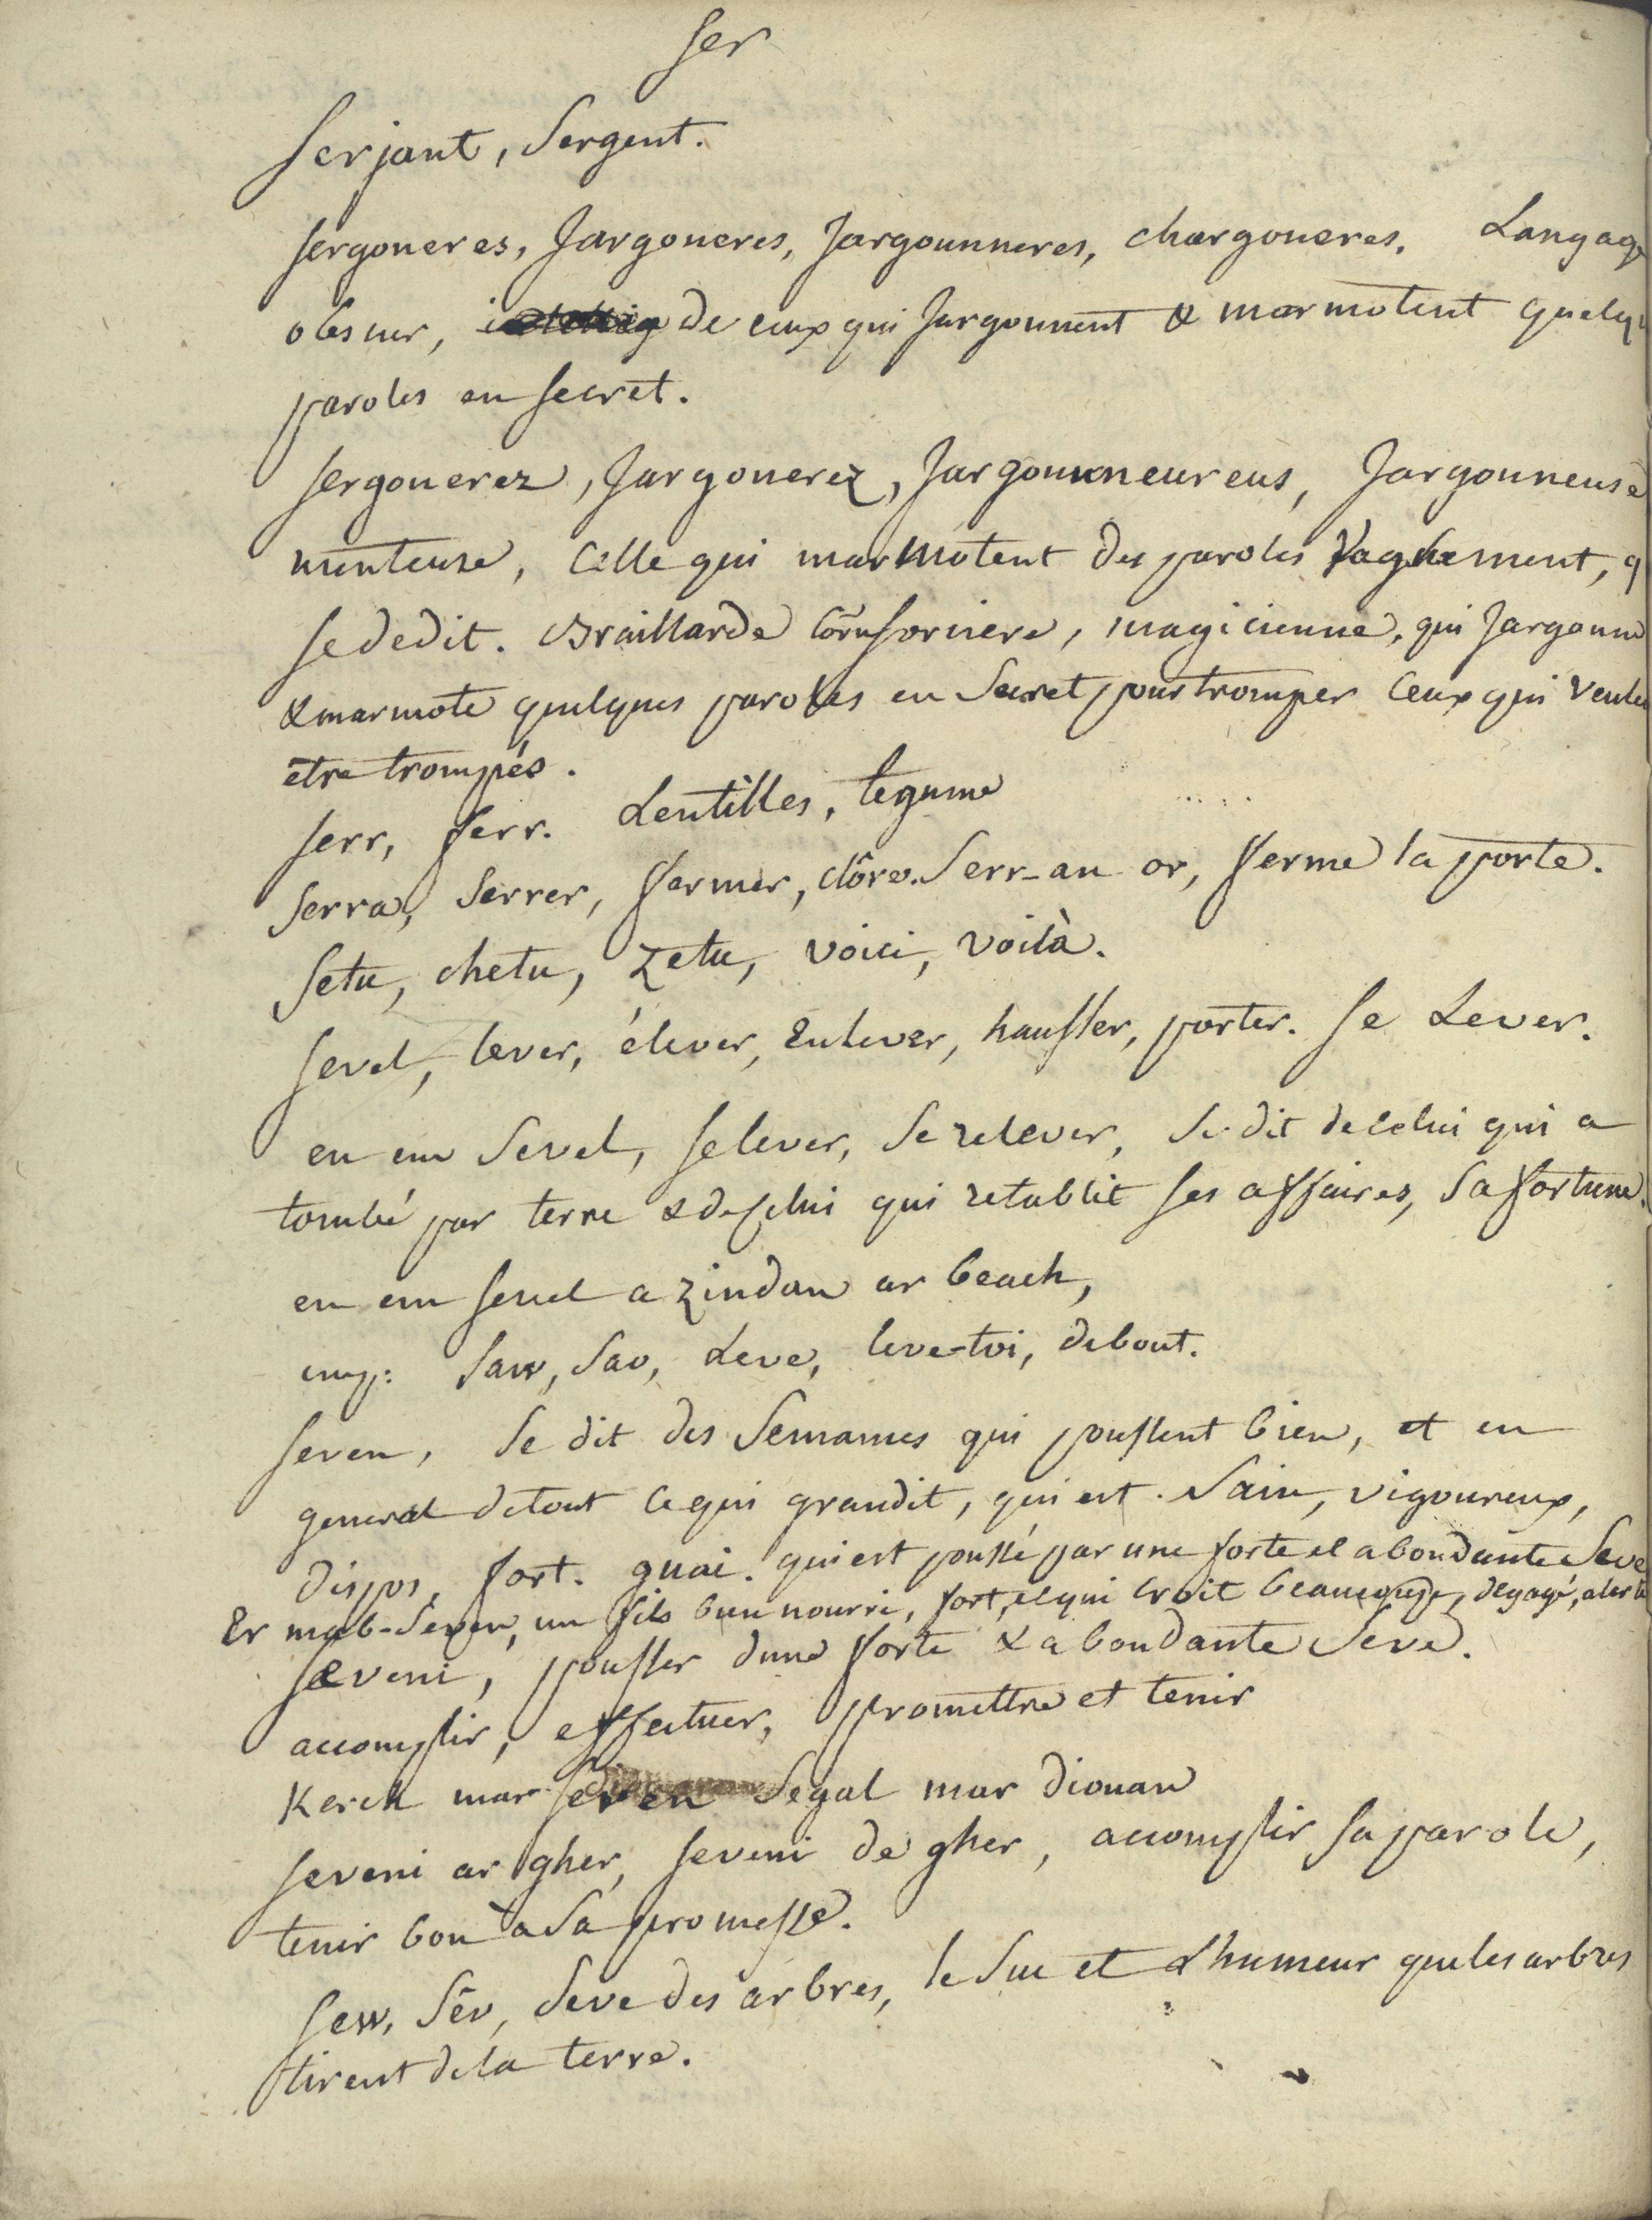 Ser
Serjant, Sergent.
Sergoneres, Jargoneres, Jargounneres, chargoneres. Langage
obscur, de ceux qui Jargonnent & marmotent quelqu
paroles en secret.
Sergonerez, Jargonerez, Jargounneureus, Jargonneuse
menteuse, Celle qui marmotent des paroles vaguement, q
se dedit. Braillarde magicienne, qui Jargonne
& marmote quelques paroles en Secret pour tromper Ceux qui veule
etre trompés.
Serr, ferr. Lentilles, legume
Serra, Serrer, fermer, clôre. Serr-an or, ferme la porte.
Setu, chetu, Zetu, voici, voilà.
Sevel, lever, élever, Enlever, hausser, porter. Se Lever.
en em Sevel, se lever, Se relever, Se dit de celui qui a
tombé par terre & de celui qui retablit ses affaires, Sa fortune.
en em sevel a zindan ar beach,
imp: Saw, Sav, Leve, leve-toi, debout.
Seven, Se dit des Semances qui poussent bien, et en
general de tout ce qui grandit, qui est Sain, vigoureux,
dispos, fort. guai. qui est poussé par une forte et abondante Seve
Er mab-Seven, un fils bien nourri, fort, et qui croit beaucoup, degagé, alerte
Seveni, pousser dune forte & abondante Seve.
accomplir, effectuer, promettre et tenir
Kerch mar seven Segal mar diouan
Seveni ar gher, Seveni de gher, accomplir sa parole,
tenir bon à Sa promesse.
Sew, Sēv, Seve des arbres, le Suc et L'humeur que les arbres
tirent de la terre.